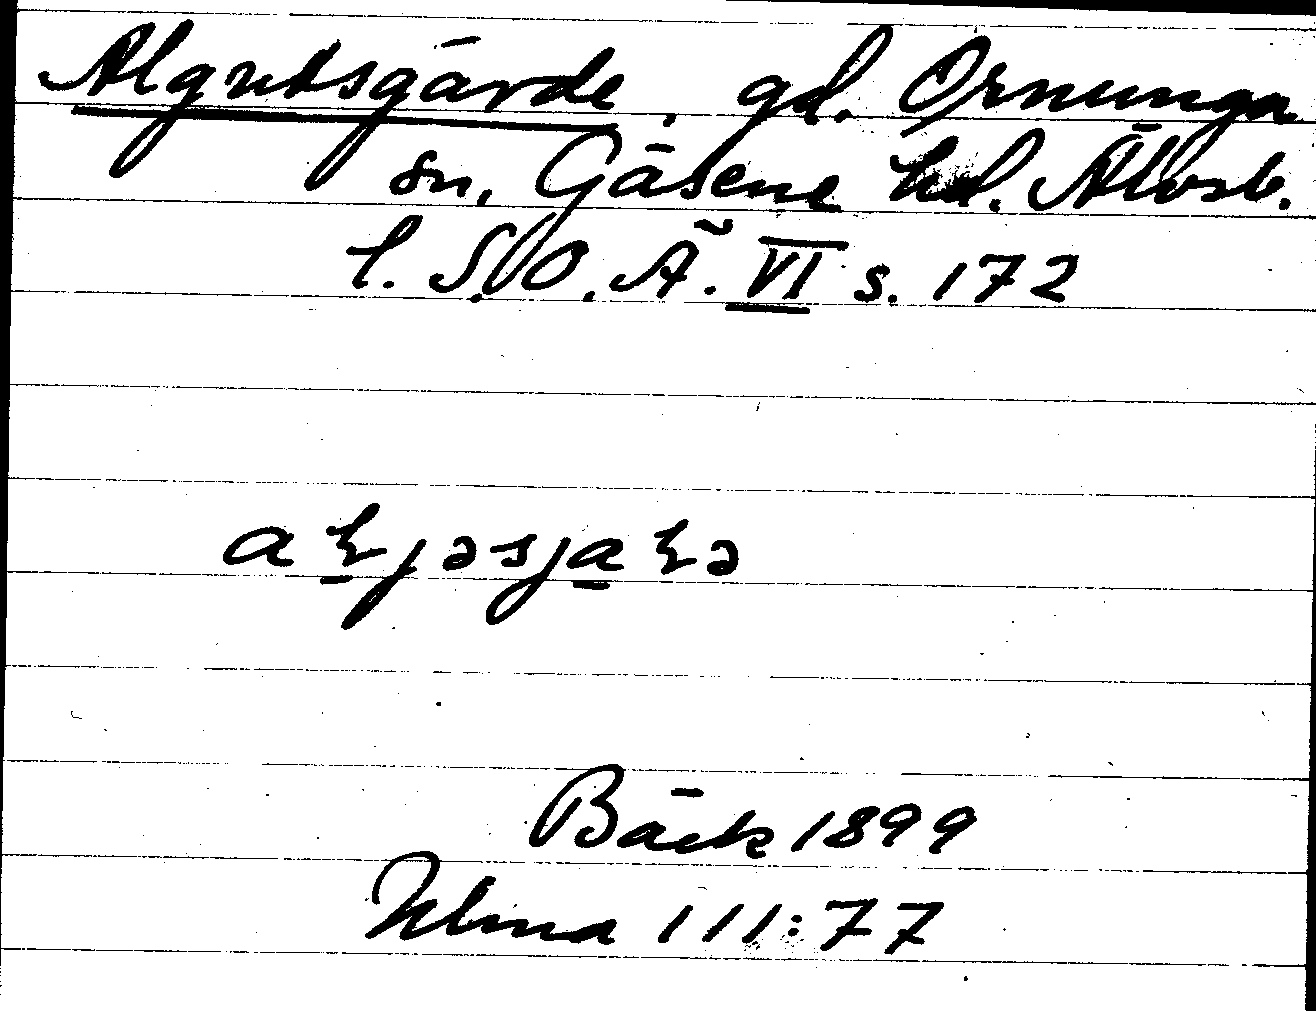 Algutsgärde, gd. Ornunga
sn, Gäsene hd. Älvsb.
l. S.O.Ä. VI s. 172
Bäck 1899
Ulma 111:77